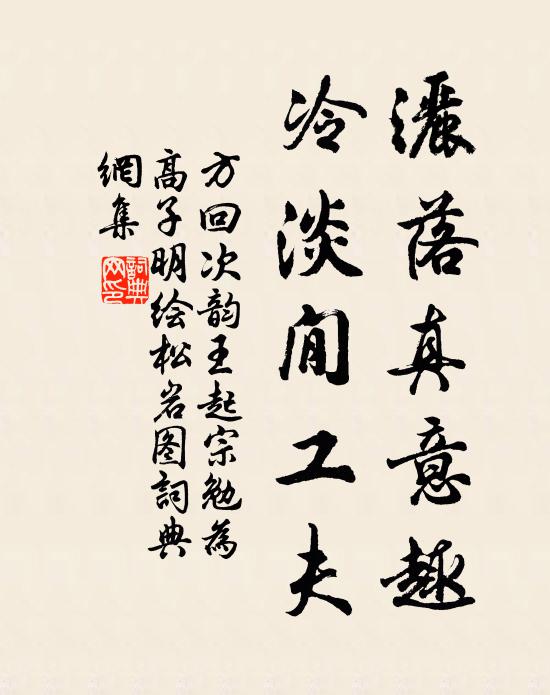 灑落真意趣
冷淡閒工夫
方回次韵王起宗勉為
高子明绘松岩图詞典
網集
詞典網印